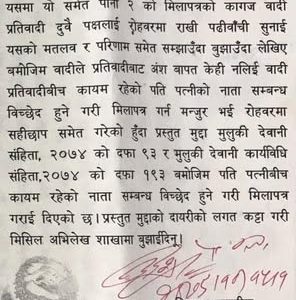 यसमा यो समेत पाना २ को मिलापत्रको कागज वादी
प्रतिवादी दुवै पक्षलाई रोहवरमा राखी पढीवाँची सुनाई
यसको मतलव र परिणाम समेत सम्झाउँदा बुझाउँदा लेखिए
बमोजिम वादीले प्रतिवादीबाट अंश वापत केही नलिई वादी
प्रतिवादीबीच कायम रहेको पति पत्नीको नाता सम्बन्ध
विच्छेद हुने गरी मिलापत्र गर्न मन्जुर भई रोहवरमा
सहीछाप समेत गरेको हुँदा प्रस्तुत मुद्दा मुलुकी देवानी
संहिता, २०७४ को दफा ९३ र मुलुकी देवानी कार्यविधि
संहिता,२०७४ को दफा १९३ बमोजिम पति पत्नीबीच
कायम रहेको नाता सम्बन्ध विच्छेद हुने गरी मिलापत्र
गराई दिएको छ। प्रस्तुत मुद्दाको दायरीको लगत कट्टा गरी
मिसिल अभिलेख शाखामा बुझाईदिनू।